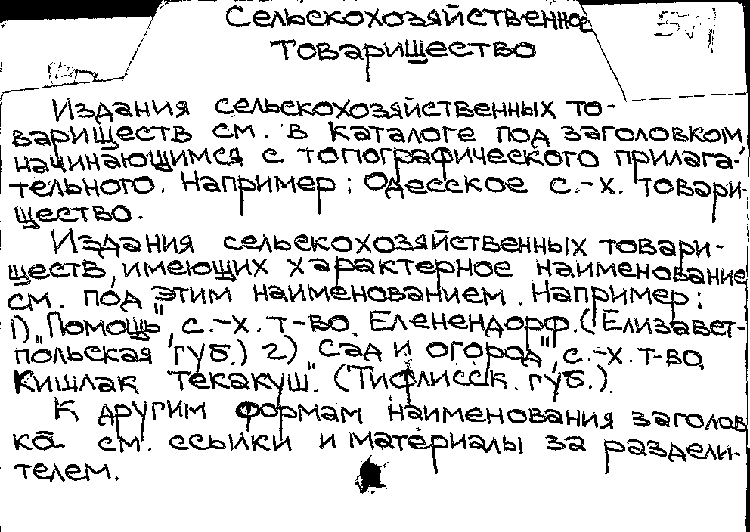 Сельскохозяйственное
Товарищество
Издания сельскохозяйственных то-
вариществ см. в каталоге под заголовком
начинающимся с топографического прилага-
тельного. Например: Одесское с.-х. товари-
щество.
Издания сельскохозяйственных товари-
ществ, имеющих характерное наименование
см. под этим наименованием. Например:
1) "Помощь", с.-х. т-во. Еленендорф. (Елизавет-
польская губ.) 2) "Сад и огород", с.-х. т-во,
Кишлак Текакуш. (Тифлисск. губ.).
К другим формам наименования заголов
ка см. ссылки и материалы за раздели-
телем.